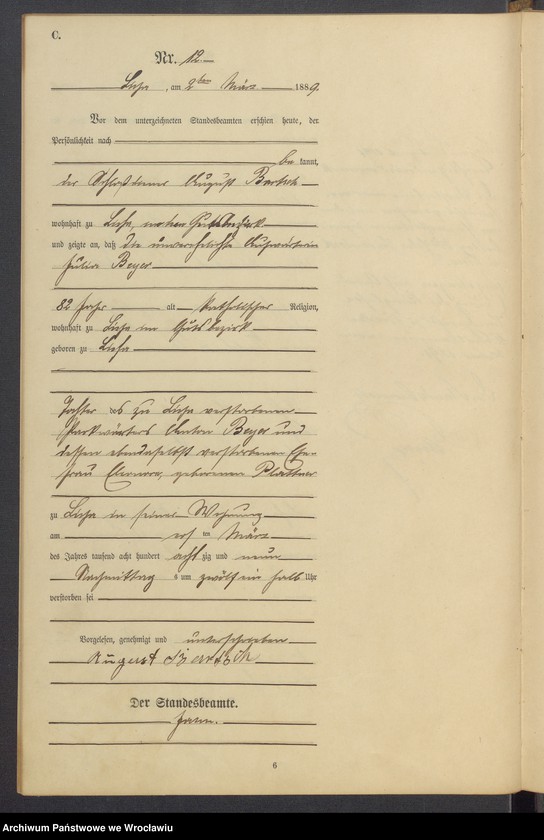 C.
Nr. 12.
Lissa, am 2ten März 1889.
Vor dem unterzeichneten Standesbeamten erschien heute, der
Persönlichkeit nach
be kannt,
der Schloßdiener August Bartsch
wohnhaft zu Lissa, Gutsbezirk
und zeigte an, daß die unverehelichte Auswärterin
Julia Beyer
82 Jahr alt katholischer Religion,
wohnhaft zu Lissa im Gutsbezirk
geboren zu Lissa
Tochter des zu Lissa verstorbenen
Parkwärters Anton Beyer und
dessen ebendaselbst verstorbenen Ehe-
frau Eleonora, geborenen Plattner
zu Lissa in seiner Wohnung
am ersten März
des Jahres tausend acht hundert acht zig und neun
Nachmittag s um zwölf ein halb Uhr
verstorben sei
Vorgelesen, genehmigt und unterschrieben
August Bartsch
Der Standesbeamte.
6
Archiwum Państwowe we Wrocławiu